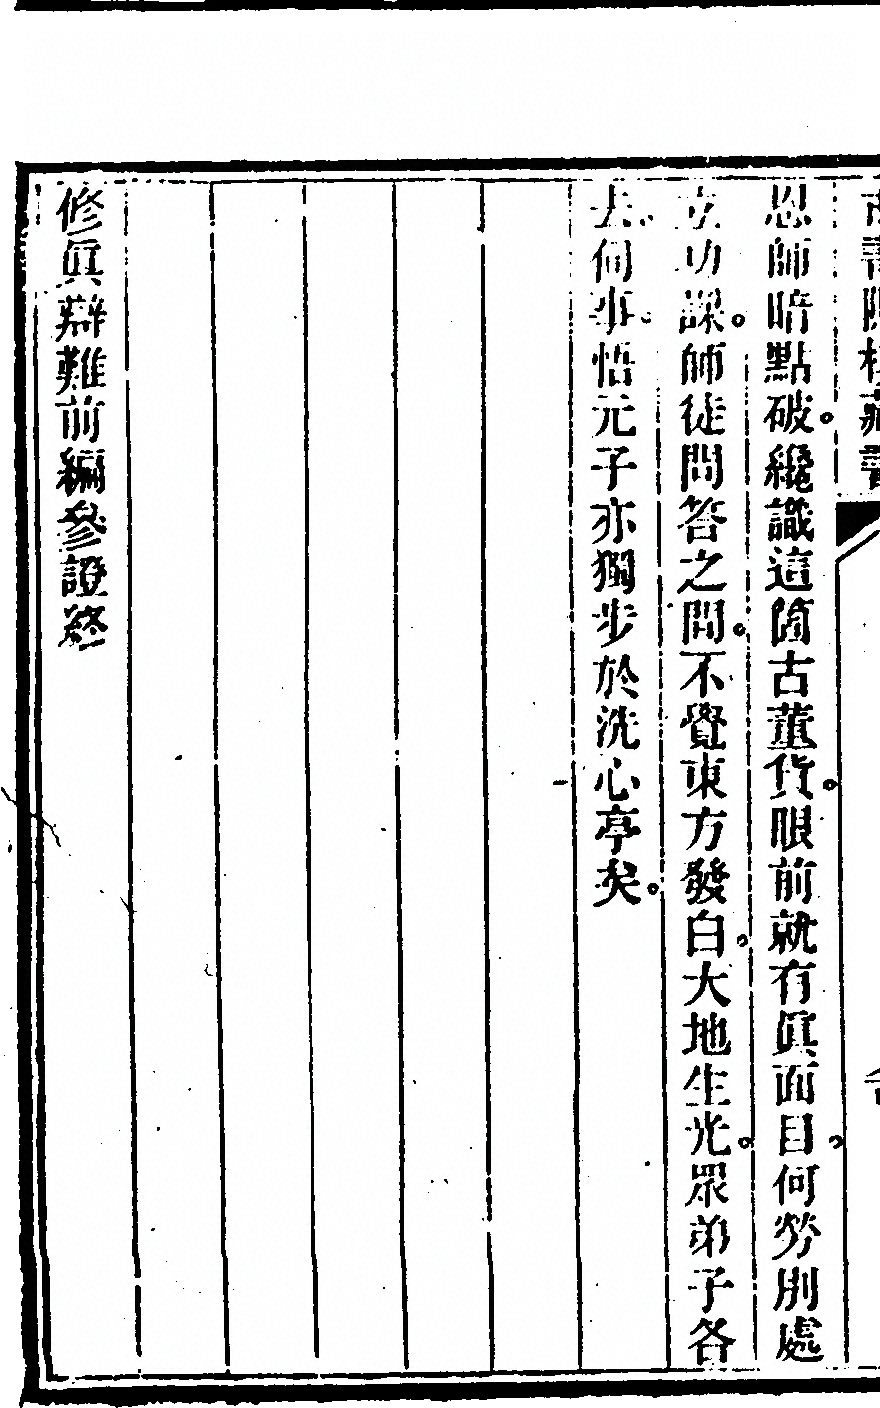 恩師暗點破。纔識這箇古董貨。眼前就有眞面目。何勞別處
立功課。師徒問答之間。不覺東方發白。大地生光。眾弟子各
去伺事。悟元子亦獨步於洗心亭矣。
修眞辯難前編參證終